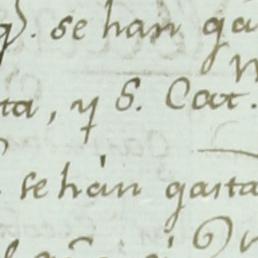 q. se han ga
ta, y S. Cat.
se han gasta